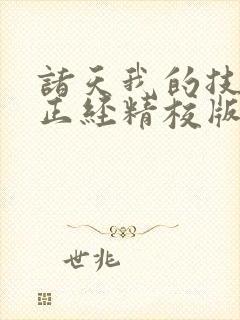 諸天我的技
正經精校版
世兆